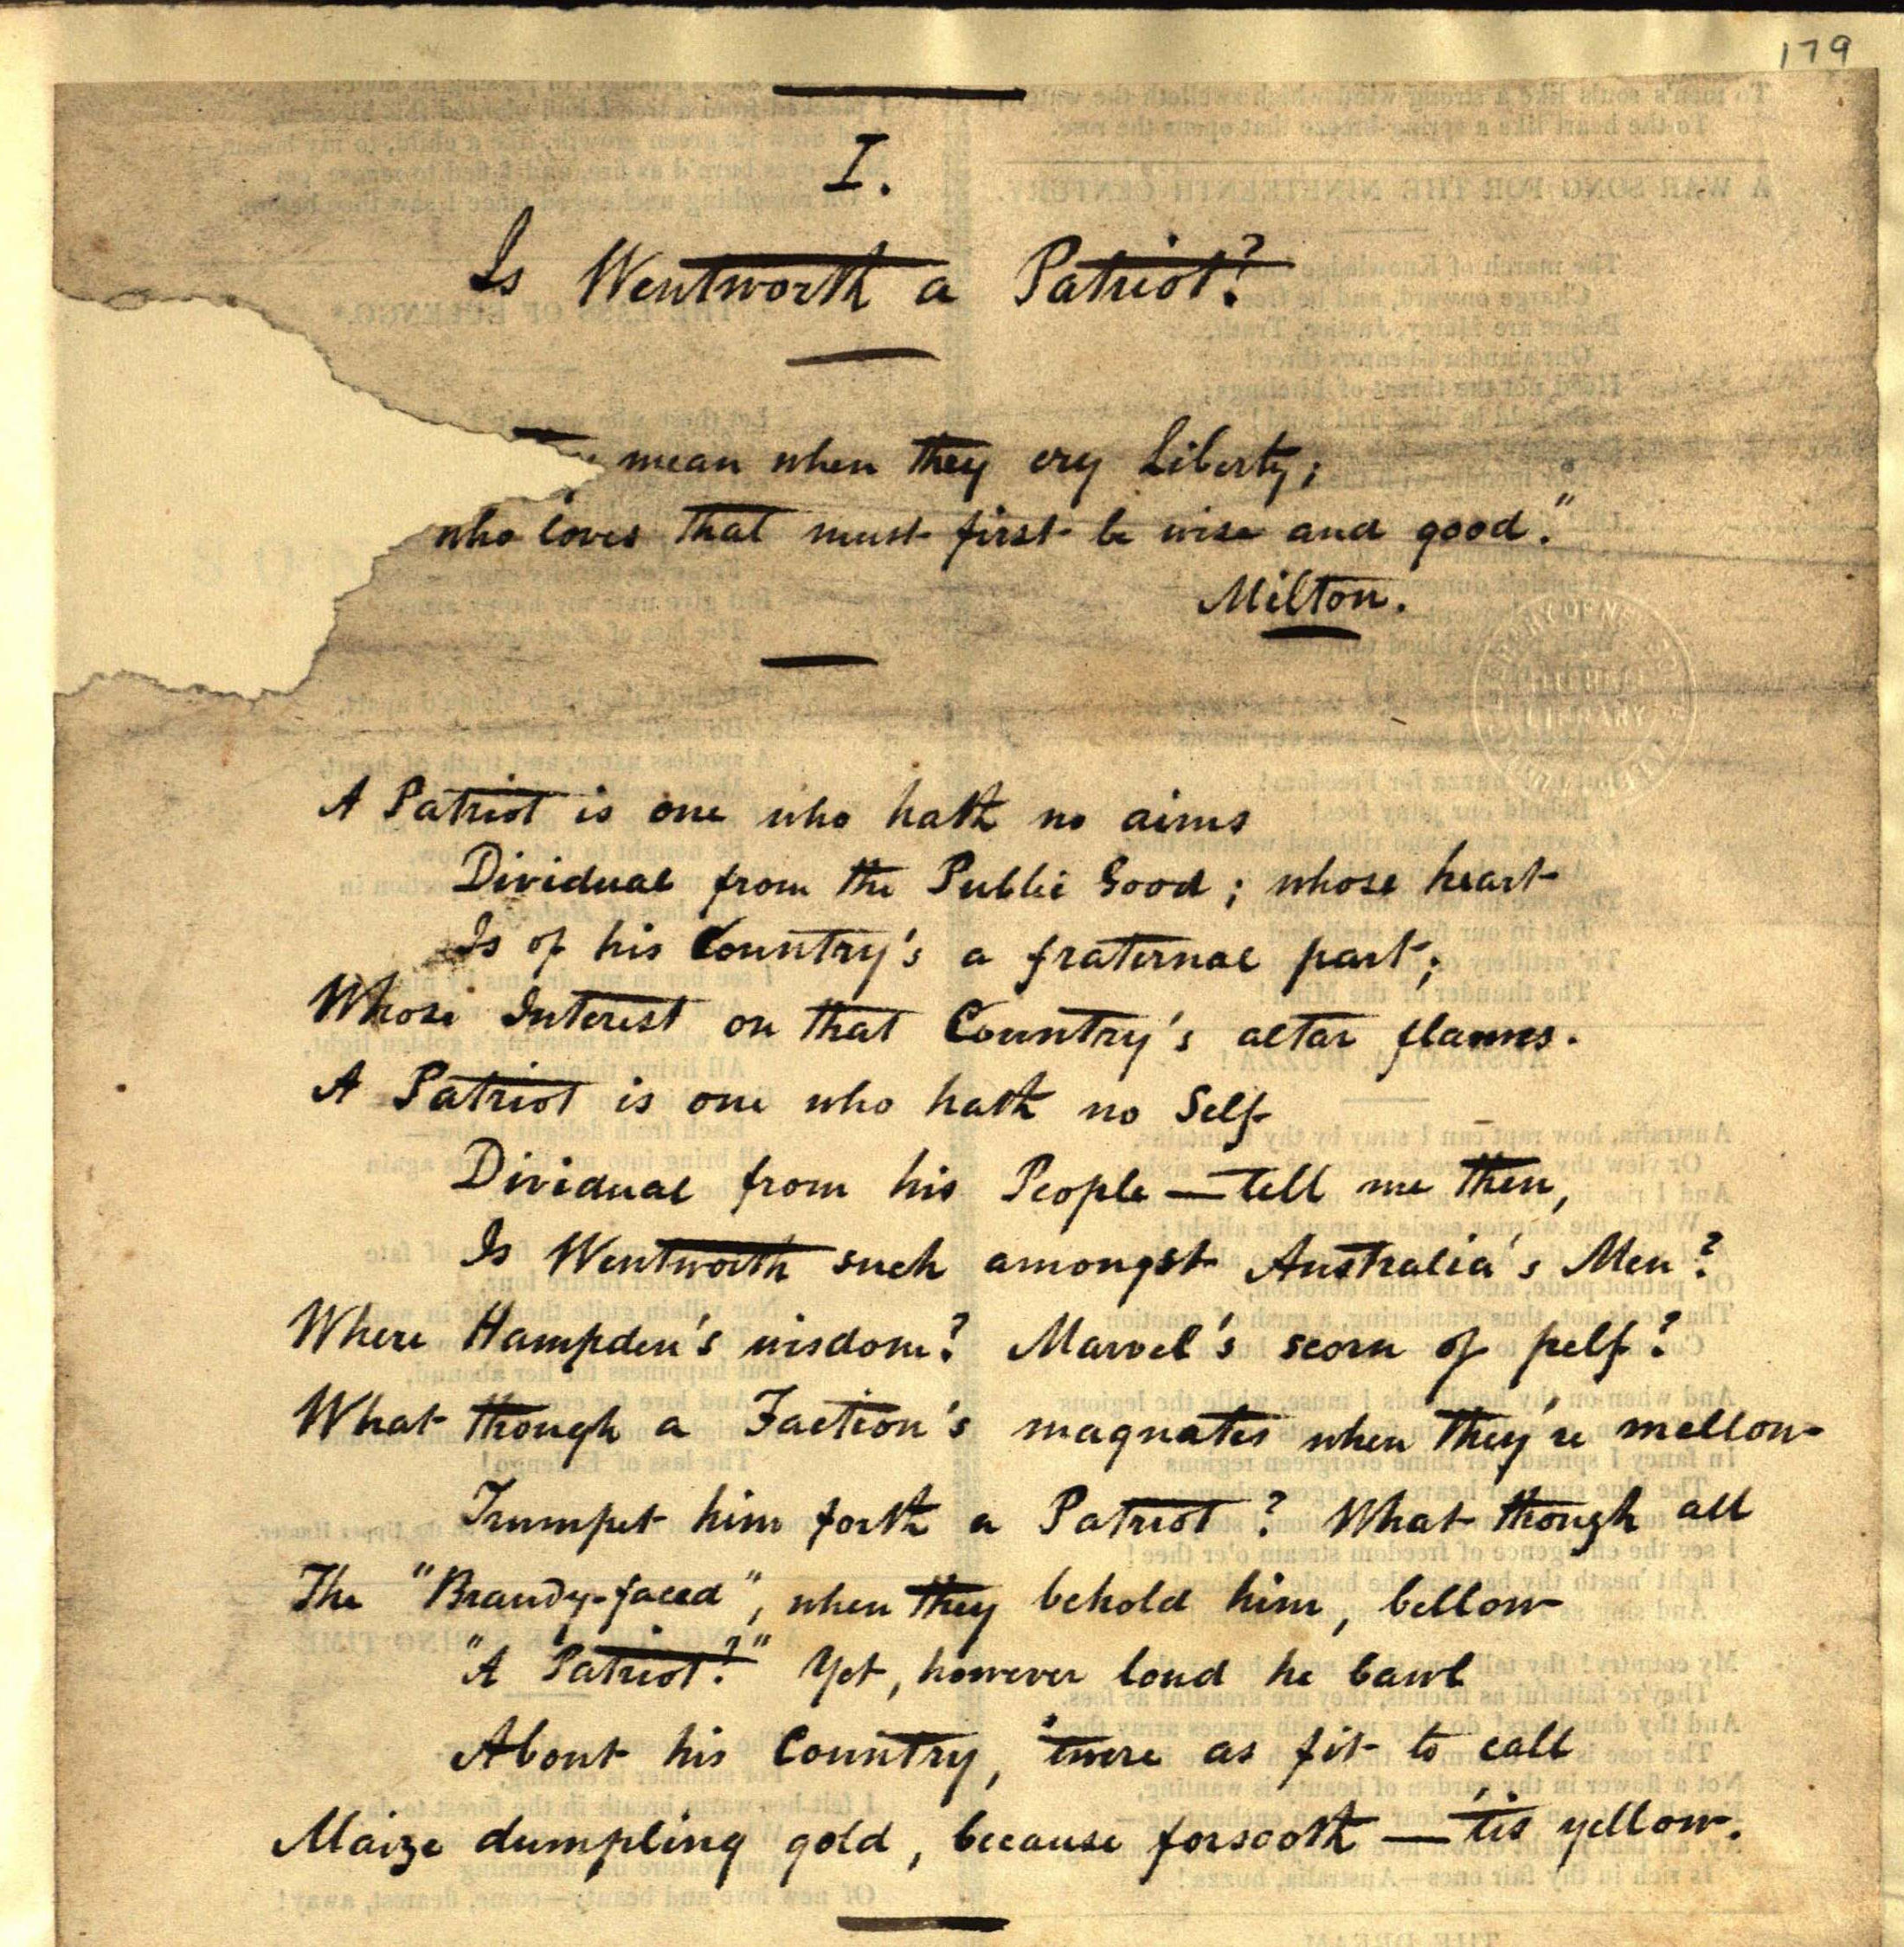 179
I.
Is Wentworth a Patriot?
mean when they cry Liberty;
who loves that must first be wise and good."
Milton.
A Patriot is one who hath no aims
Dividual from the Public Good; whose heart
Is of his Country's a fraternal part;
Whose Interest on that Country's altar flames.
A Patriot is one who hath no Self
Dividual from his People — tell me then,
Is Wentworth such amongst Australia's Men?
Where Hampden's wisdom? Marvel's scorn of pelf?
What though a Faction's magnates when they're mellow
Trumpet him forth a Patriot? What though all
The "Brandy-faced", when they behold him, bellow
"A Patriot?" Yet, however loud he bawl
About his Country, 'twere as fit to call
Maize dumpling gold, because forsooth — 'tis yellow.